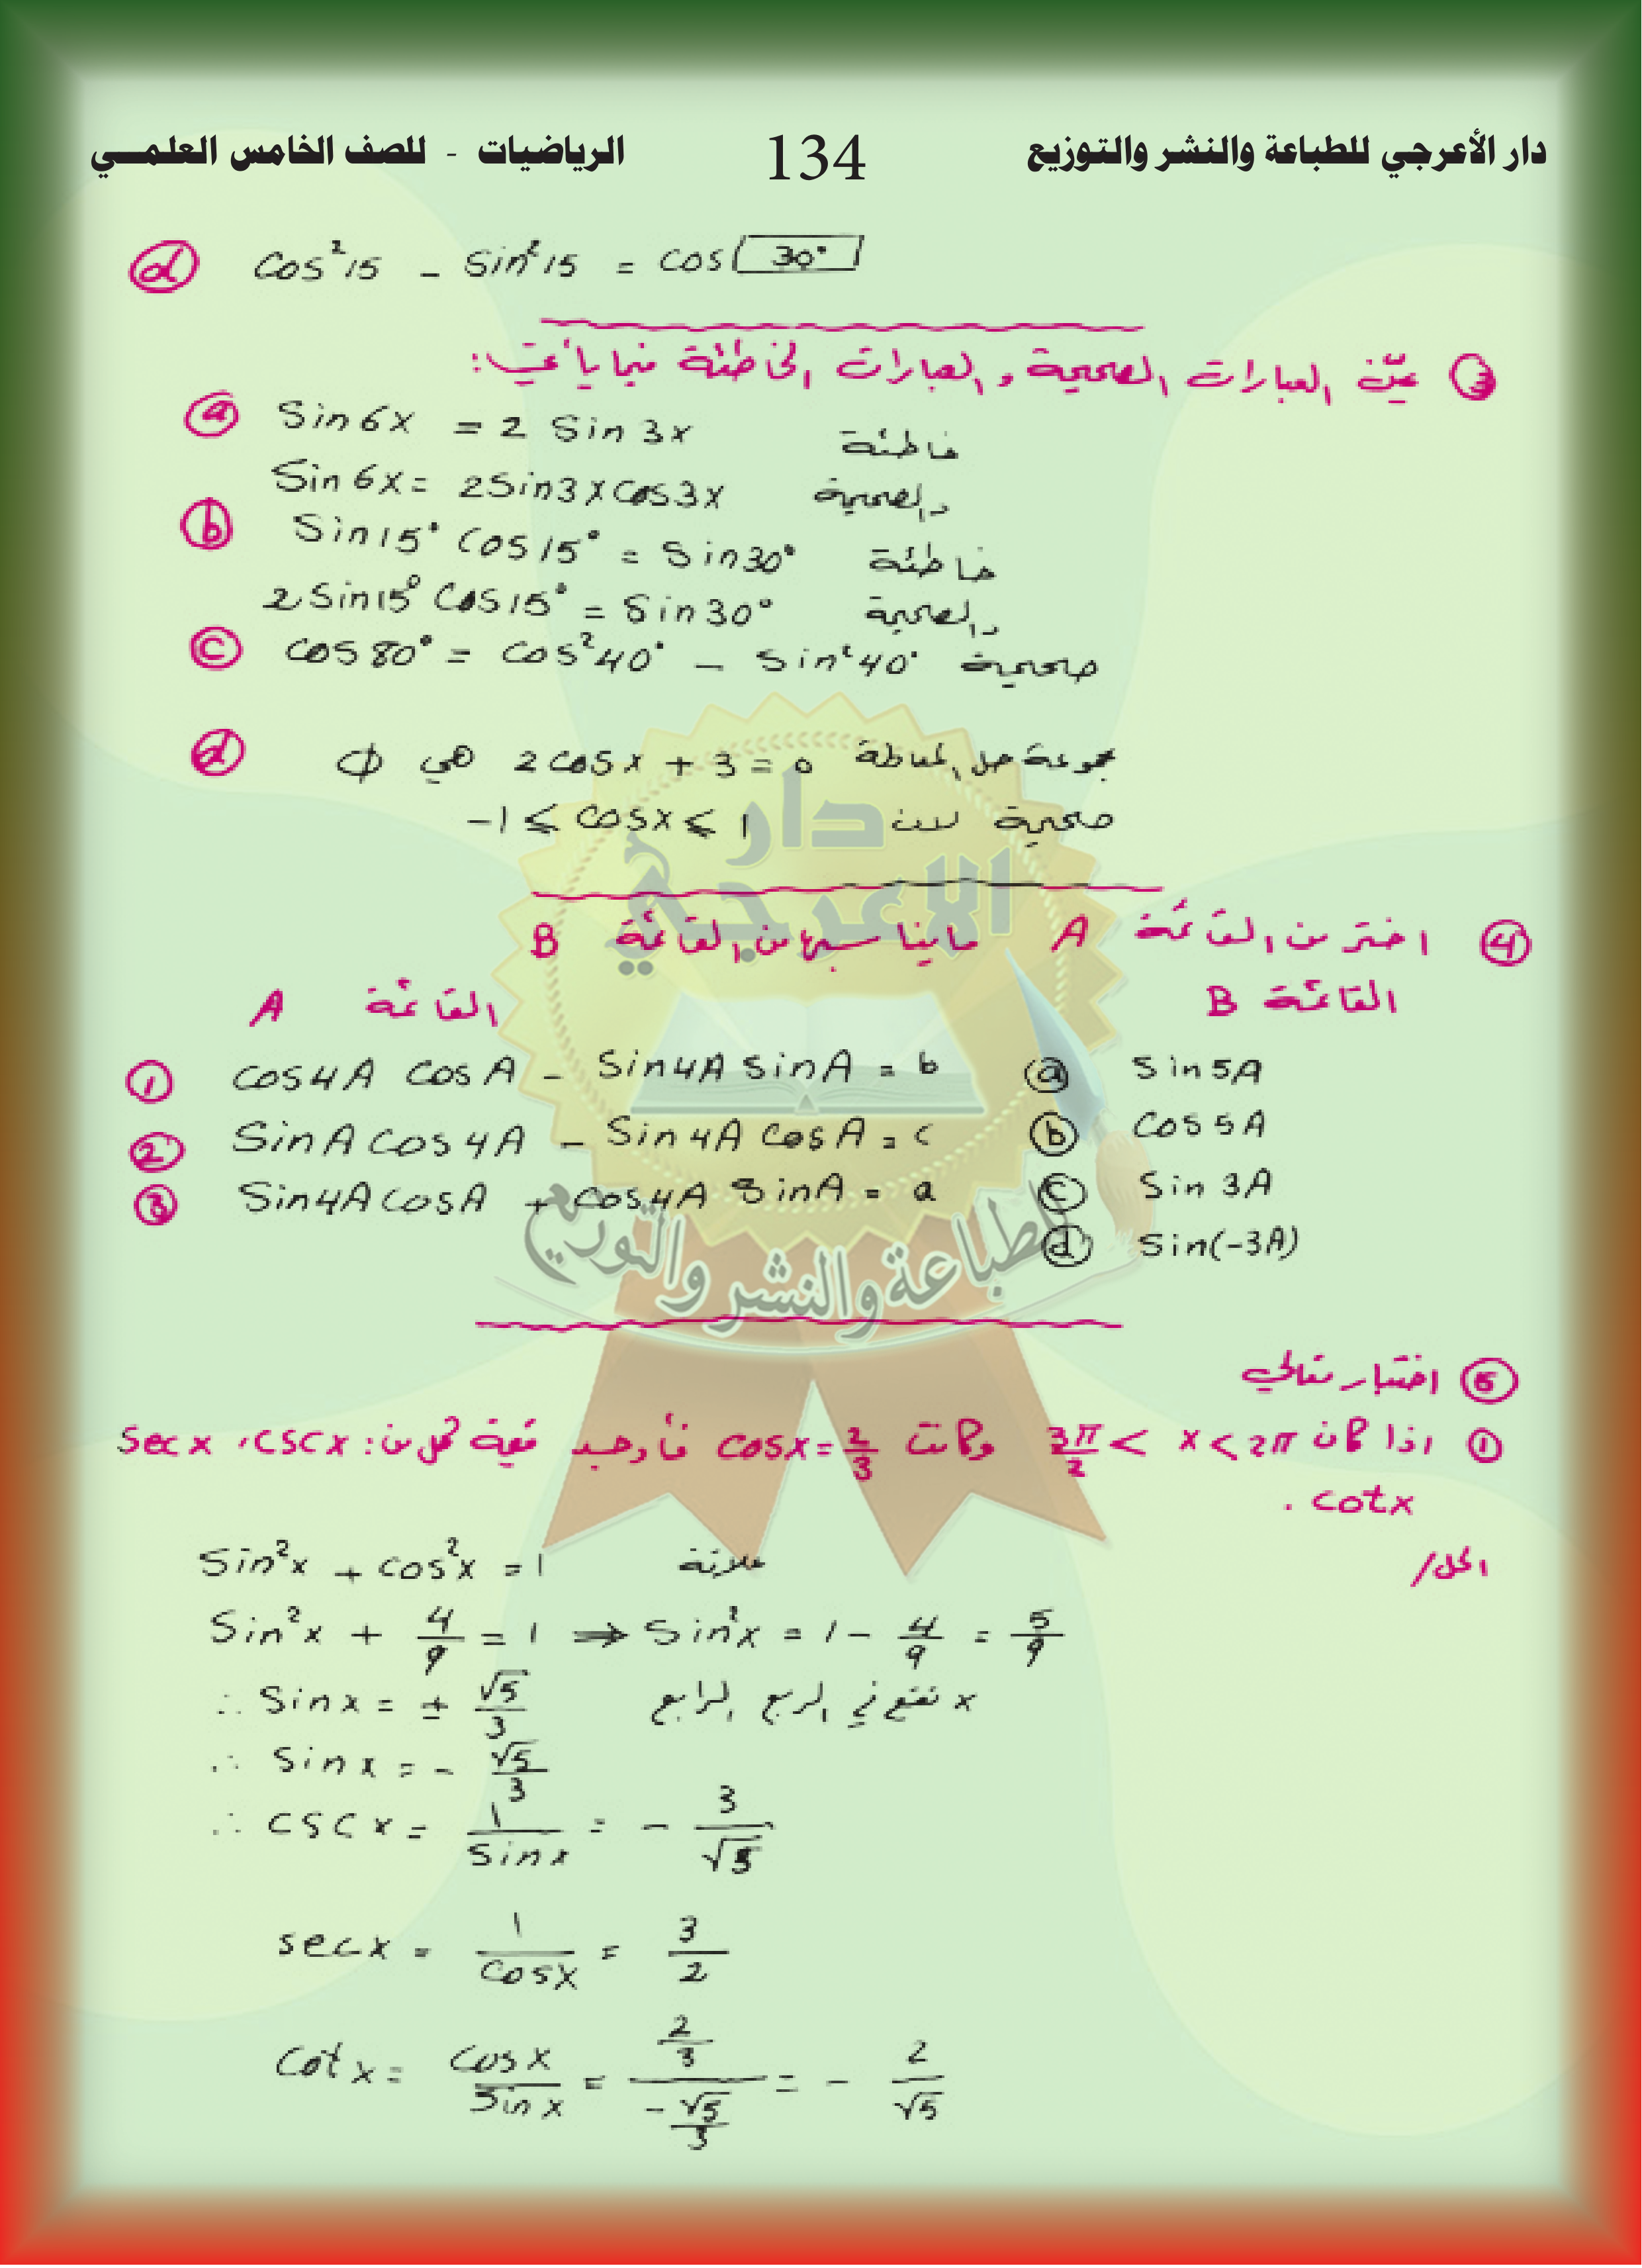 دار الأعرجي للطباعة والنشر والتوزيع 134 الرياضيات - للصف الخامس العلمـــي
ⓓ cos²15 - sin²15 = cos 30°
③ عيّن العبارات الصحيحة والعبارات الخاطئة فيما يأتي:
ⓐ Sin6x = 2 Sin3x خاطئة
Sin6x = 2Sin3xCos3x والصحيحة
ⓑ Sin15° Cos15° = Sin30° خاطئة
2Sin15° Cos15° = Sin30° والصحيحة
ⓒ cos80° = cos²40° - Sin²40° صحيحة
ⓓ مجموعة حل المعادلة 2cosx + 3 = 0 هي ϕ
صحيحة لان -1 ≤ cosx ≤ 1
④ اختر من القائمة A مايناسبها من القائمة B
القائمة A القائمة B
① cos4A cosA - Sin4A sinA = b ⓐ Sin5A
② SinA cos4A - Sin4A cosA = c ⓑ Cos5A
③ Sin4A cosA + cos4A SinA = a ⓒ Sin3A
ⓓ Sin(-3A)
دار
الاعرجي
للطباعة والنشر والتوزيع
⑤ اختبار مقالي
① اذا كان 3π/2 < x < 2π وكانت cosx = 2/3 فأوجد قيمة كل من: secx ، cscx
cotx .
الحل/
Sin²x + cos²x = 1 علاقة
Sin²x + 4/9 = 1 ⇒ Sin²x = 1 - 4/9 = 5/9
∴ Sinx = ± √5/3 x تقع في الربع الرابع
∴ Sinx = - √5/3
∴ cscx = 1/Sinx = - 3/√5
secx = 1/cosx = 3/2
Cotx = cosx/Sinx = (2/3)/(-√5/3) = - 2/√5